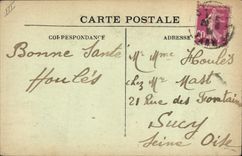 III
CARTE POSTALE
CORRESPONDANCE
ADRESSE
Bonne Santé
Houlès
Mr Mme Houlès
chez Mr Mast
21 Rue des Fontaines
Sucy
Seine Oise